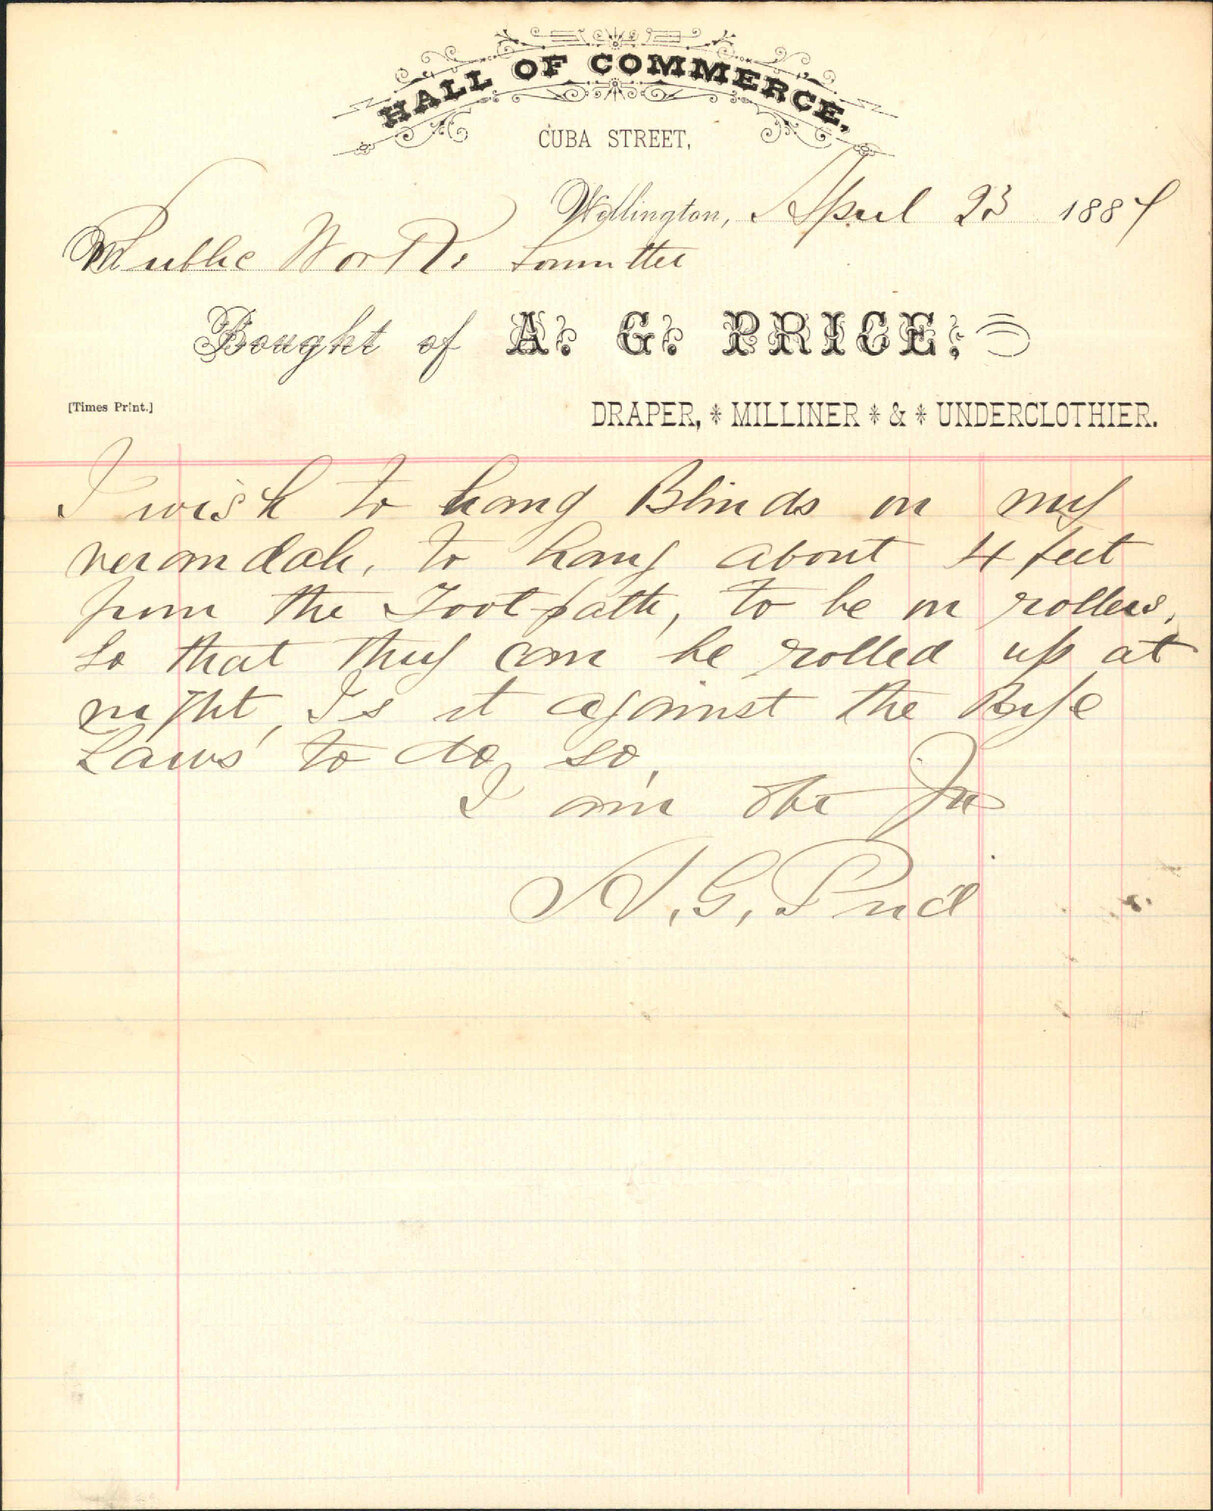 HALL OF COMMERCE,
CUBA STREET,
Wellington, April 23 1884
M Public Works Committee
Bought of A. G. PRICE.
[Times Print.]
DRAPER, * MILLINER * & * UNDERCLOTHIER.
I wish to hang Blinds on my
verandah, to hang about 4 feet
from the Footpath, to be on rollers,
so that they can be rolled up at
night, Is it against the Bye
Laws to do so,
I am
A. G. Price